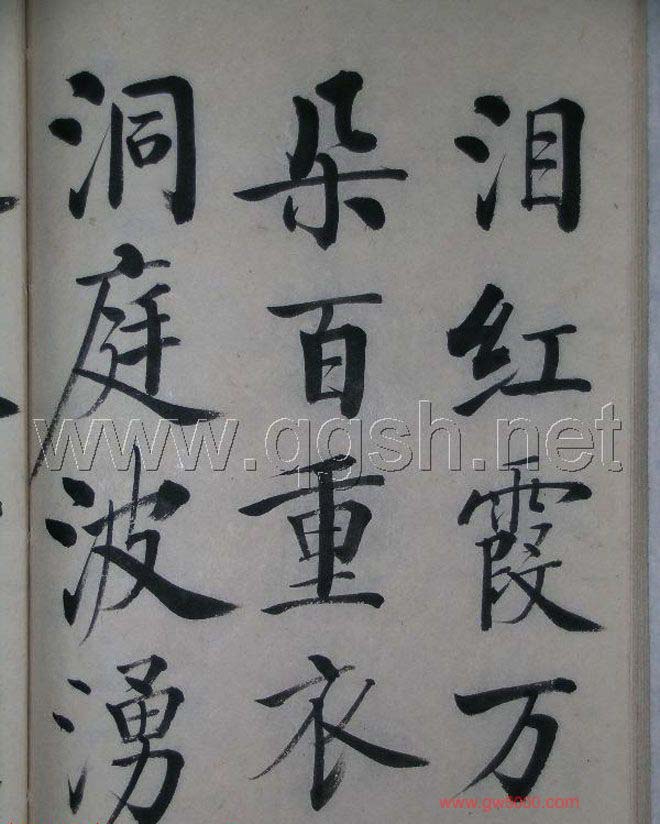 泪红霞万
朵百重衣
洞庭波湧
www.qgsh.net
www.gw8000.com